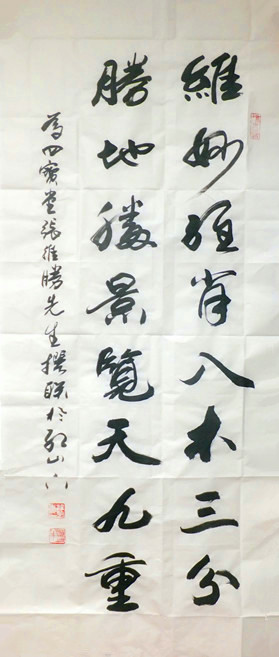 維妙維肖入木三分
勝地勝景覽天九重
為四寶堂張維勝先生撰聯於山下